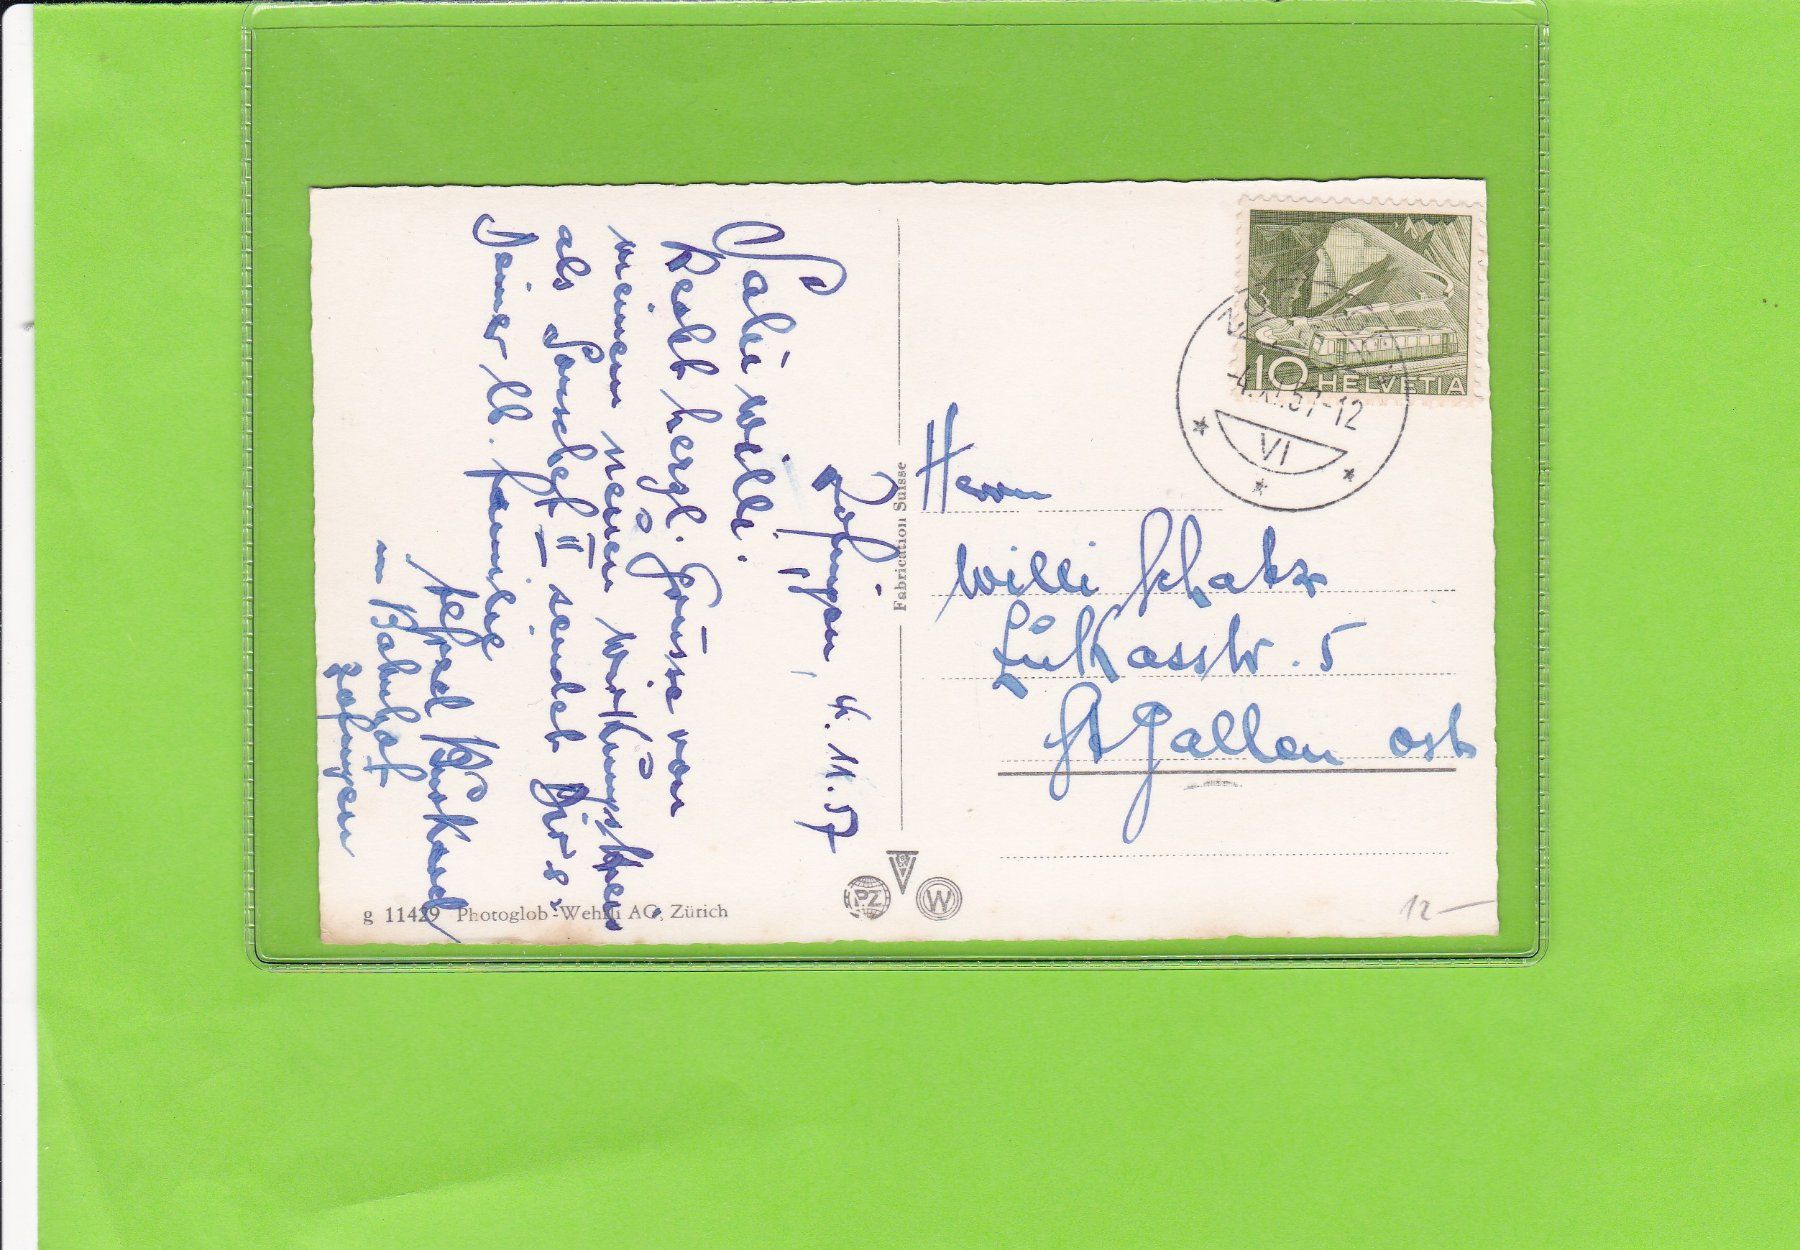 Zofingen, 4. 11. 57
Salü Willi.
Recht herzl. Grüsse von
meinem neuen Wirkungskreis
als II sendet Dir &
Deiner lb. Familie
Alfred
im Bahnhof
Zofingen
g 11429 Photoglob-Wehrli AG, Zürich
Fabrication Suisse
PZ
W
10 HELVETIA
-4.XI.57-12
VI
Herrn
Willi Schatz
Lukasstr. 5
St Gallen ost
12—